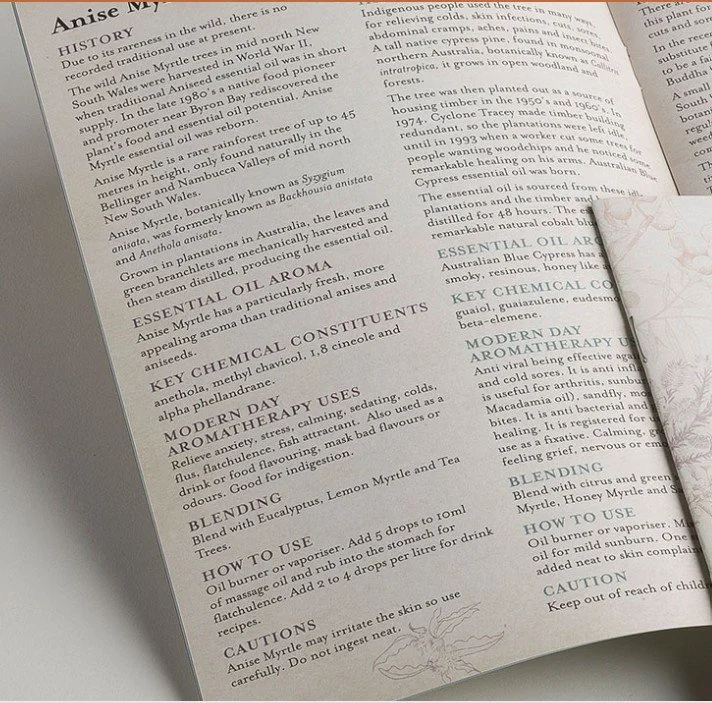 Anise
HISTORY
Due to its rareness in the wild, there is no
recorded traditional use at present.
The wild Anise Myrtle trees in mid north New
South Wales were harvested in World War II,
when traditional Aniseed essential oil was in short
supply. In the late 1980's a native food pioneer
and promoter near Byron Bay rediscovered the
plant's food and essential oil potential. Anise
Myrtle essential oil was reborn.
Anise Myrtle is a rare rainforest tree of up to 45
metres in height, only found naturally in the
Bellinger and Nambucca Valleys of mid north
New South Wales.
Anise Myrtle, botanically known as Syzygium
anisata, was formerly known as Backhousia anistata
and Anethola anisata.
Grown in plantations in Australia, the leaves and
green branchlets are mechanically harvested and
then steam distilled, producing the essential oil.
ESSENTIAL OIL AROMA
Anise Myrtle has a particularly fresh, more
appealing aroma than traditional anises and
aniseeds.
KEY CHEMICAL CONSTITUENTS
anethola, methyl chavicol, 1,8 cineole and
alpha phellandrane.
MODERN DAY
AROMATHERAPY USES
Relieve anxiety, stress, calming, sedating, colds,
flus, flatchulence, fish attractant. Also used as a
drink or food flavouring, mask bad flavours or
odours. Good for indigestion.
BLENDING
Blend with Eucalyptus, Lemon Myrtle and Tea
Trees.
HOW TO USE
Oil burner or vaporiser. Add 5 drops to 10ml
of massage oil and rub into the stomach for
flatchulence. Add 2 to 4 drops per litre for drink
recipes.
CAUTIONS
Anise Myrtle may irritate the skin so use
carefully. Do not ingest neat.
Indigenous people used the tree in many ways,
for relieving colds, skin infections, cuts, sores,
abdominal cramps, aches, pains and insect bites.
A tall native cypress pine, found in monsoonal
northern Australia, botanically known as Callitris
intratropica, it grows in open woodland and
forests.
The tree was then planted out as a source of
housing timber in the 1950's and 1960's. In
1974, Cyclone Tracey made timber building
redundant, so the plantations were left idle
until in 1993 when a worker cut some trees for
people wanting woodchips and he noticed some
remarkable healing on his arms. Australian Blue
Cypress essential oil was born.
The essential oil is sourced from these idle
plantations and the timber
distilled for 48 hours. The
remarkable natural cobalt
ESSENTIAL OIL
Australian Blue Cypress has a
smoky, resinous, honey like
KEY CHEMICAL
guaiol, guaiazulene,
beta-elemene.
MODERN DAY
AROMATHERAPY
Anti viral being effective
and cold sores. It is anti
is useful for arthritis,
Macadamia oil), sandfly,
bites. It is anti bacterial and
healing. It is registered for
use as a fixative. Calming,
feeling grief, nervous or
BLENDING
Blend with citrus and green
Myrtle, Honey Myrtle and
HOW TO USE
Oil burner or vaporiser.
oil for mild sunburn. One
added neat to skin
CAUTION
Keep out of reach of
There
this plant for
cuts and
In the
substitute
to be a
Buddha
A small
South